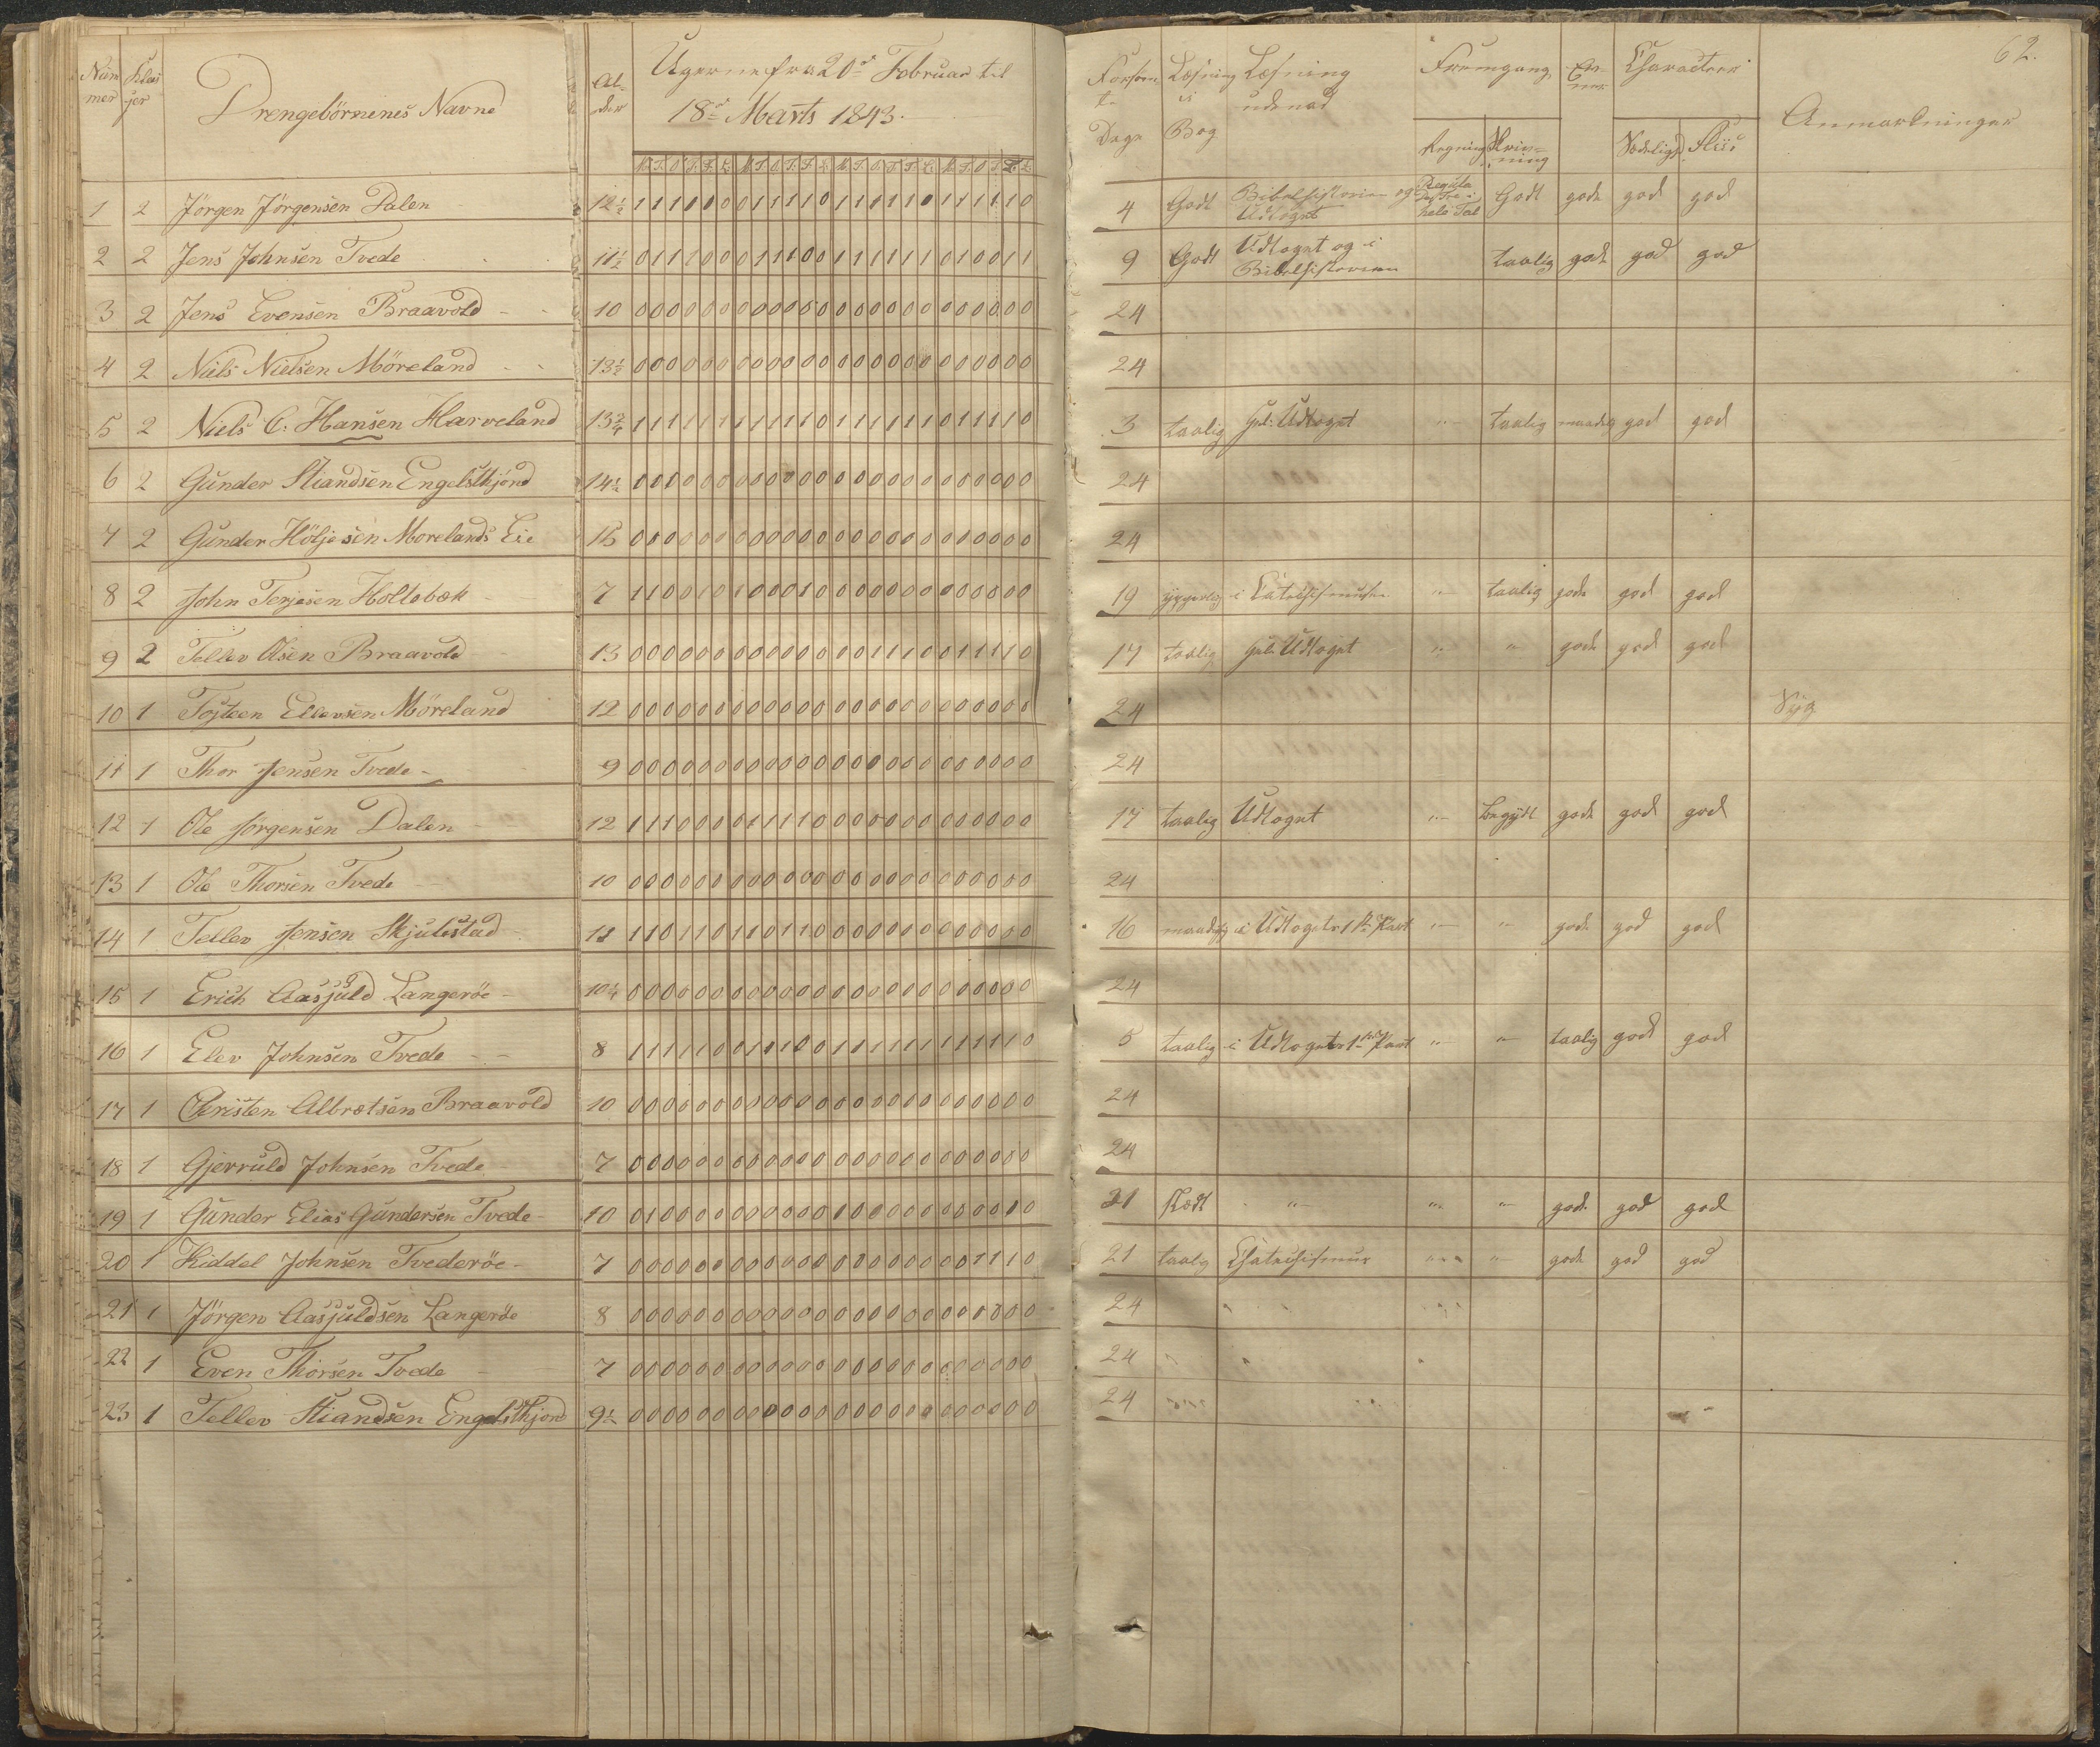 62.
Num mer | Klas ser | Drengebörnenes Navne | Al- der | Ugerne fra 20de Februar til 18de Marts 1843. | Forsöm te Dage | Læsning i Bog | Læsning udenad | Fremgang | Ev- ner | Character | Anmærkninger
M. T. O. T. F. L. M. T. O. T. F. L. M. T. O. T. F. L. M. T. O. T. F. L. | Regning | Skriv= ning | Sædelighed | Fliis
1 2 Jörgen Jörgensen Dalen 12½ | 4 Godt Bibelhistorien og Udtoget Regula De Trie i hele Tal Godt gode god god
2 2 Jens Johnsen Tvede 11½ | 9 Godt Udtoget og i Bibelhistorien taalig gode god god
3 2 Jens Evensen Braavold 10 000000000000000000000000 24
4 2 Niels Nielsen Möreland 13½ 000000000000000000000000 24
5 2 Niels C. Hansen Harveland 13¾ | 3 taalig Udtoget " taalig maadelig god god
6 2 Gunder Stiandsen Engelsthjönd 14½ 000000000000000000000000 24
7 2 Gunder Höljesen Morelands Eie 15 000000000000000000000000 24
8 2 John Terjesen Holtebæk 7 | 19 i Catechismussen " taalig gode god god
9 2 Tellev Olsen Braavold 13 | 17 taalig Udtoget " " gode god god
10 1 Tosteen Ellevsen Möreland 12 000000000000000000000000 24 Syg
11 1 Thor Jensen Tvede 9 000000000000000000000000 24
12 1 Ole Jörgensen Dalen 12 | 17 taalig Udtoget " begyndt gode god god
13 1 Ole Thorsen Tvede 10 000000000000000000000000 24
14 1 Tellev Jensen Skjulestad 11 | 16 maadelig i Udtogets 1ste Part " " gode god god
15 1 Erich Aasjuld Langeröe 10¼ 000000000000000000000000 24
16 1 Elev Johnsen Tvede 8 | 5 taalig i Udtogets 1ste Part " " taalig god god
17 1 Christen Albretsen Braavold 10 000000000000000000000000 24
18 1 Gjerruld Johnsen Tvede 7 000000000000000000000000 24
19 1 Gunder Elias Gundersen Tvede 10 | 21 " " " gode god god
20 1 Kiddel Johnsen Tvederöe 7 | 21 taalig Chatechismus " " gode god god
21 1 Jörgen Aasjuldsen Langeröe 8 000000000000000000000000 24
22 1 Even Thorsen Tvede 7 000000000000000000000000 24
23 1 Tellev Stiandsen Engelsthjond 9½ 000000000000000000000000 24